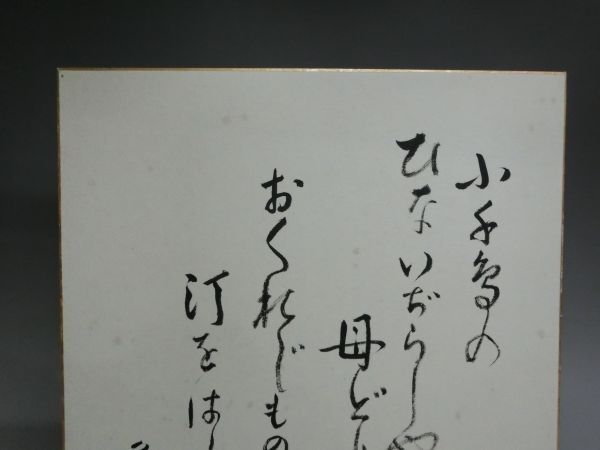 小千鳥の
ひないぢらしや
母どり
おくれじもの
汀をはし